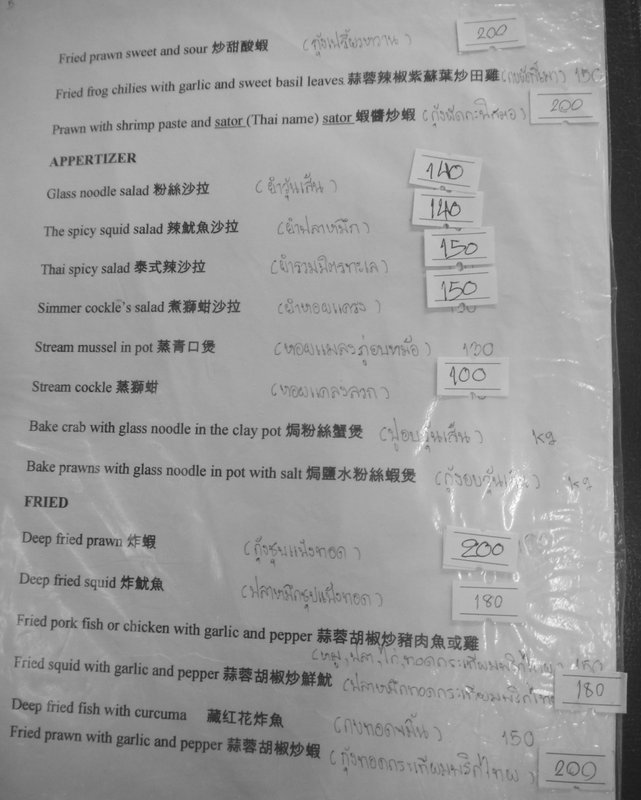 Fried prawn sweet and sour 炒甜酸蝦 (กุ้งเปรี้ยวหวาน) 200
Fried frog chilies with garlic and sweet basil leaves 蒜蓉辣椒紫蘇葉炒田雞 150
Prawn with shrimp paste and sator (Thai name) sator 蝦醬炒蝦 200
APPERTIZER
Glass noodle salad 粉絲沙拉 (ยำวุ้นเส้น) 140
The spicy squid salad 辣魷魚沙拉 (ยำปลาหมึก) 140
Thai spicy salad 泰式辣沙拉 (ยำรวมมิตรทะเล) 150
Simmer cockle's salad 煮獅蚶沙拉 (ยำหอยแครง) 150
Stream mussel in pot 蒸青口煲 (หอยแมลงภู่อบหม้อ) 130
Stream cockle 蒸獅蚶 (หอยแครงลวก) 100
Bake crab with glass noodle in the clay pot 焗粉絲蟹煲 (ปูอบวุ้นเส้น) kg
Bake prawns with glass noodle in pot with salt 焗鹽水粉絲蝦煲 (กุ้งอบวุ้นเส้น) kg
FRIED
Deep fried prawn 炸蝦 (กุ้งชุบแป้งทอด) 200
Deep fried squid 炸魷魚 (ปลาหมึกชุปแป้งทอด) 180
Fried pork fish or chicken with garlic and pepper 蒜蓉胡椒炒豬肉魚或雞
(หมู,ปลา,ไก่,ทอดกระเทียมพริกไทย) 150
Fried squid with garlic and pepper 蒜蓉胡椒炒鮮魷 (ปลาหมึกทอดกระเทียมพริกไทย 180
Deep fried fish with curcuma 藏红花炸魚 150
Fried prawn with garlic and pepper 蒜蓉胡椒炒蝦 (กุ้งทอดกระเทียมพริกไทย) 200